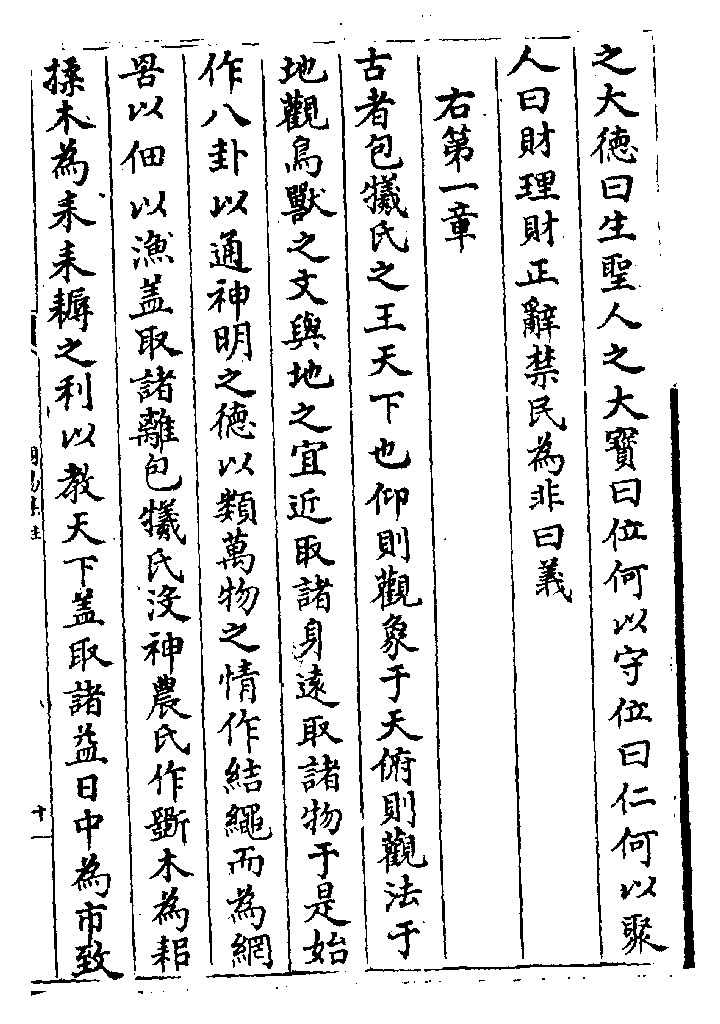 之大德曰生聖人之大寶曰位何以守位曰仁何以聚
人曰財理財正辭禁民為非曰義
右第一章
古者包犧氏之王天下也仰則觀象于天俯則觀法于
地觀鳥獸之文與地之宜近取諸身遠取諸物于是始
作八卦以通神明之德以類萬物之情作結繩而為網
罟以佃以漁盖取諸離包犧氏沒神農氏作斲木為耜
揉木為耒耒耨之利以教天下盖取諸益日中為市致
十一